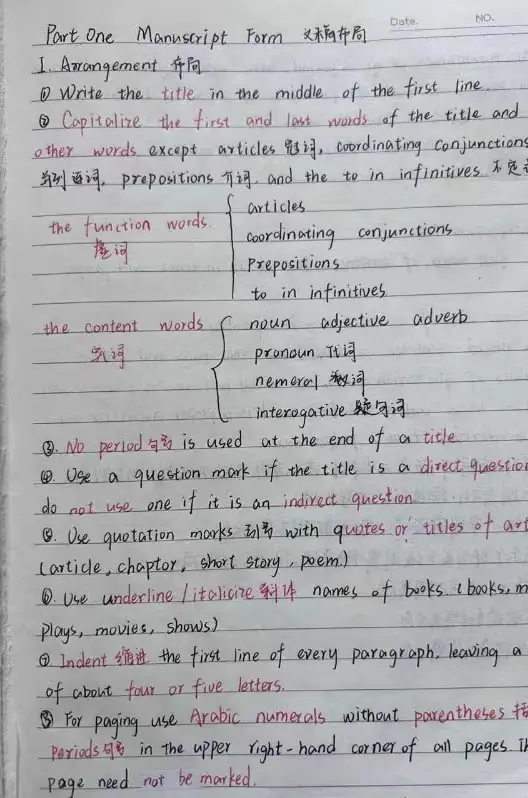 Date. NO.
Part One Manuscript Form 文稿布局
I. Arrangement 布局
① Write the title in the middle of the first line.
② Capitalize the first and last words of the title and
other words except articles 冠词, coordinating conjunctions
并列连词, prepositions 介词, and the to in infinitives 不定
the function words. 虚词
articles
coordinating conjunctions
Prepositions
to in infinitives
the content words 实词
noun adjective adverb
pronoun 代词
nemeral 数词
interogative 疑问词
③ No period 句号 is used at the end of a title
④ Use a question mark if the title is a direct question
do not use one if it is an indirect question
⑤ Use quotation marks 引号 with quotes or titles of art
(article, chaptor, short story, poem)
⑥ Use underline / italicize 斜体 names of books (books, m
plays, movies, shows)
⑦ Indent 缩进 the first line of every paragraph, leaving a
of about four or five letters.
⑧ For paging use Arabic numerals without parentheses 括
periods 句号 in the upper right-hand corner of all pages. Th
page need not be marked.